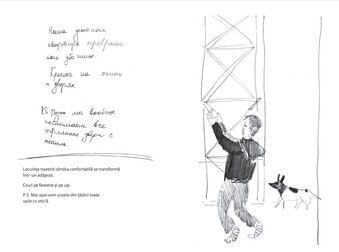 Наша уютная
квартира превраща-
лась в убежище.
Кресты на окнах
и дверях.
P.S. Позже мы вообще
вынимаем все
двери с
петель.
Locuința noastră cândva confortabilă se transformă
într-un adăpost.
Cruci pe ferestre și pe uși.
P.S. Mai apoi vom scoate din țâțâni toate
ușile cu sticlă.